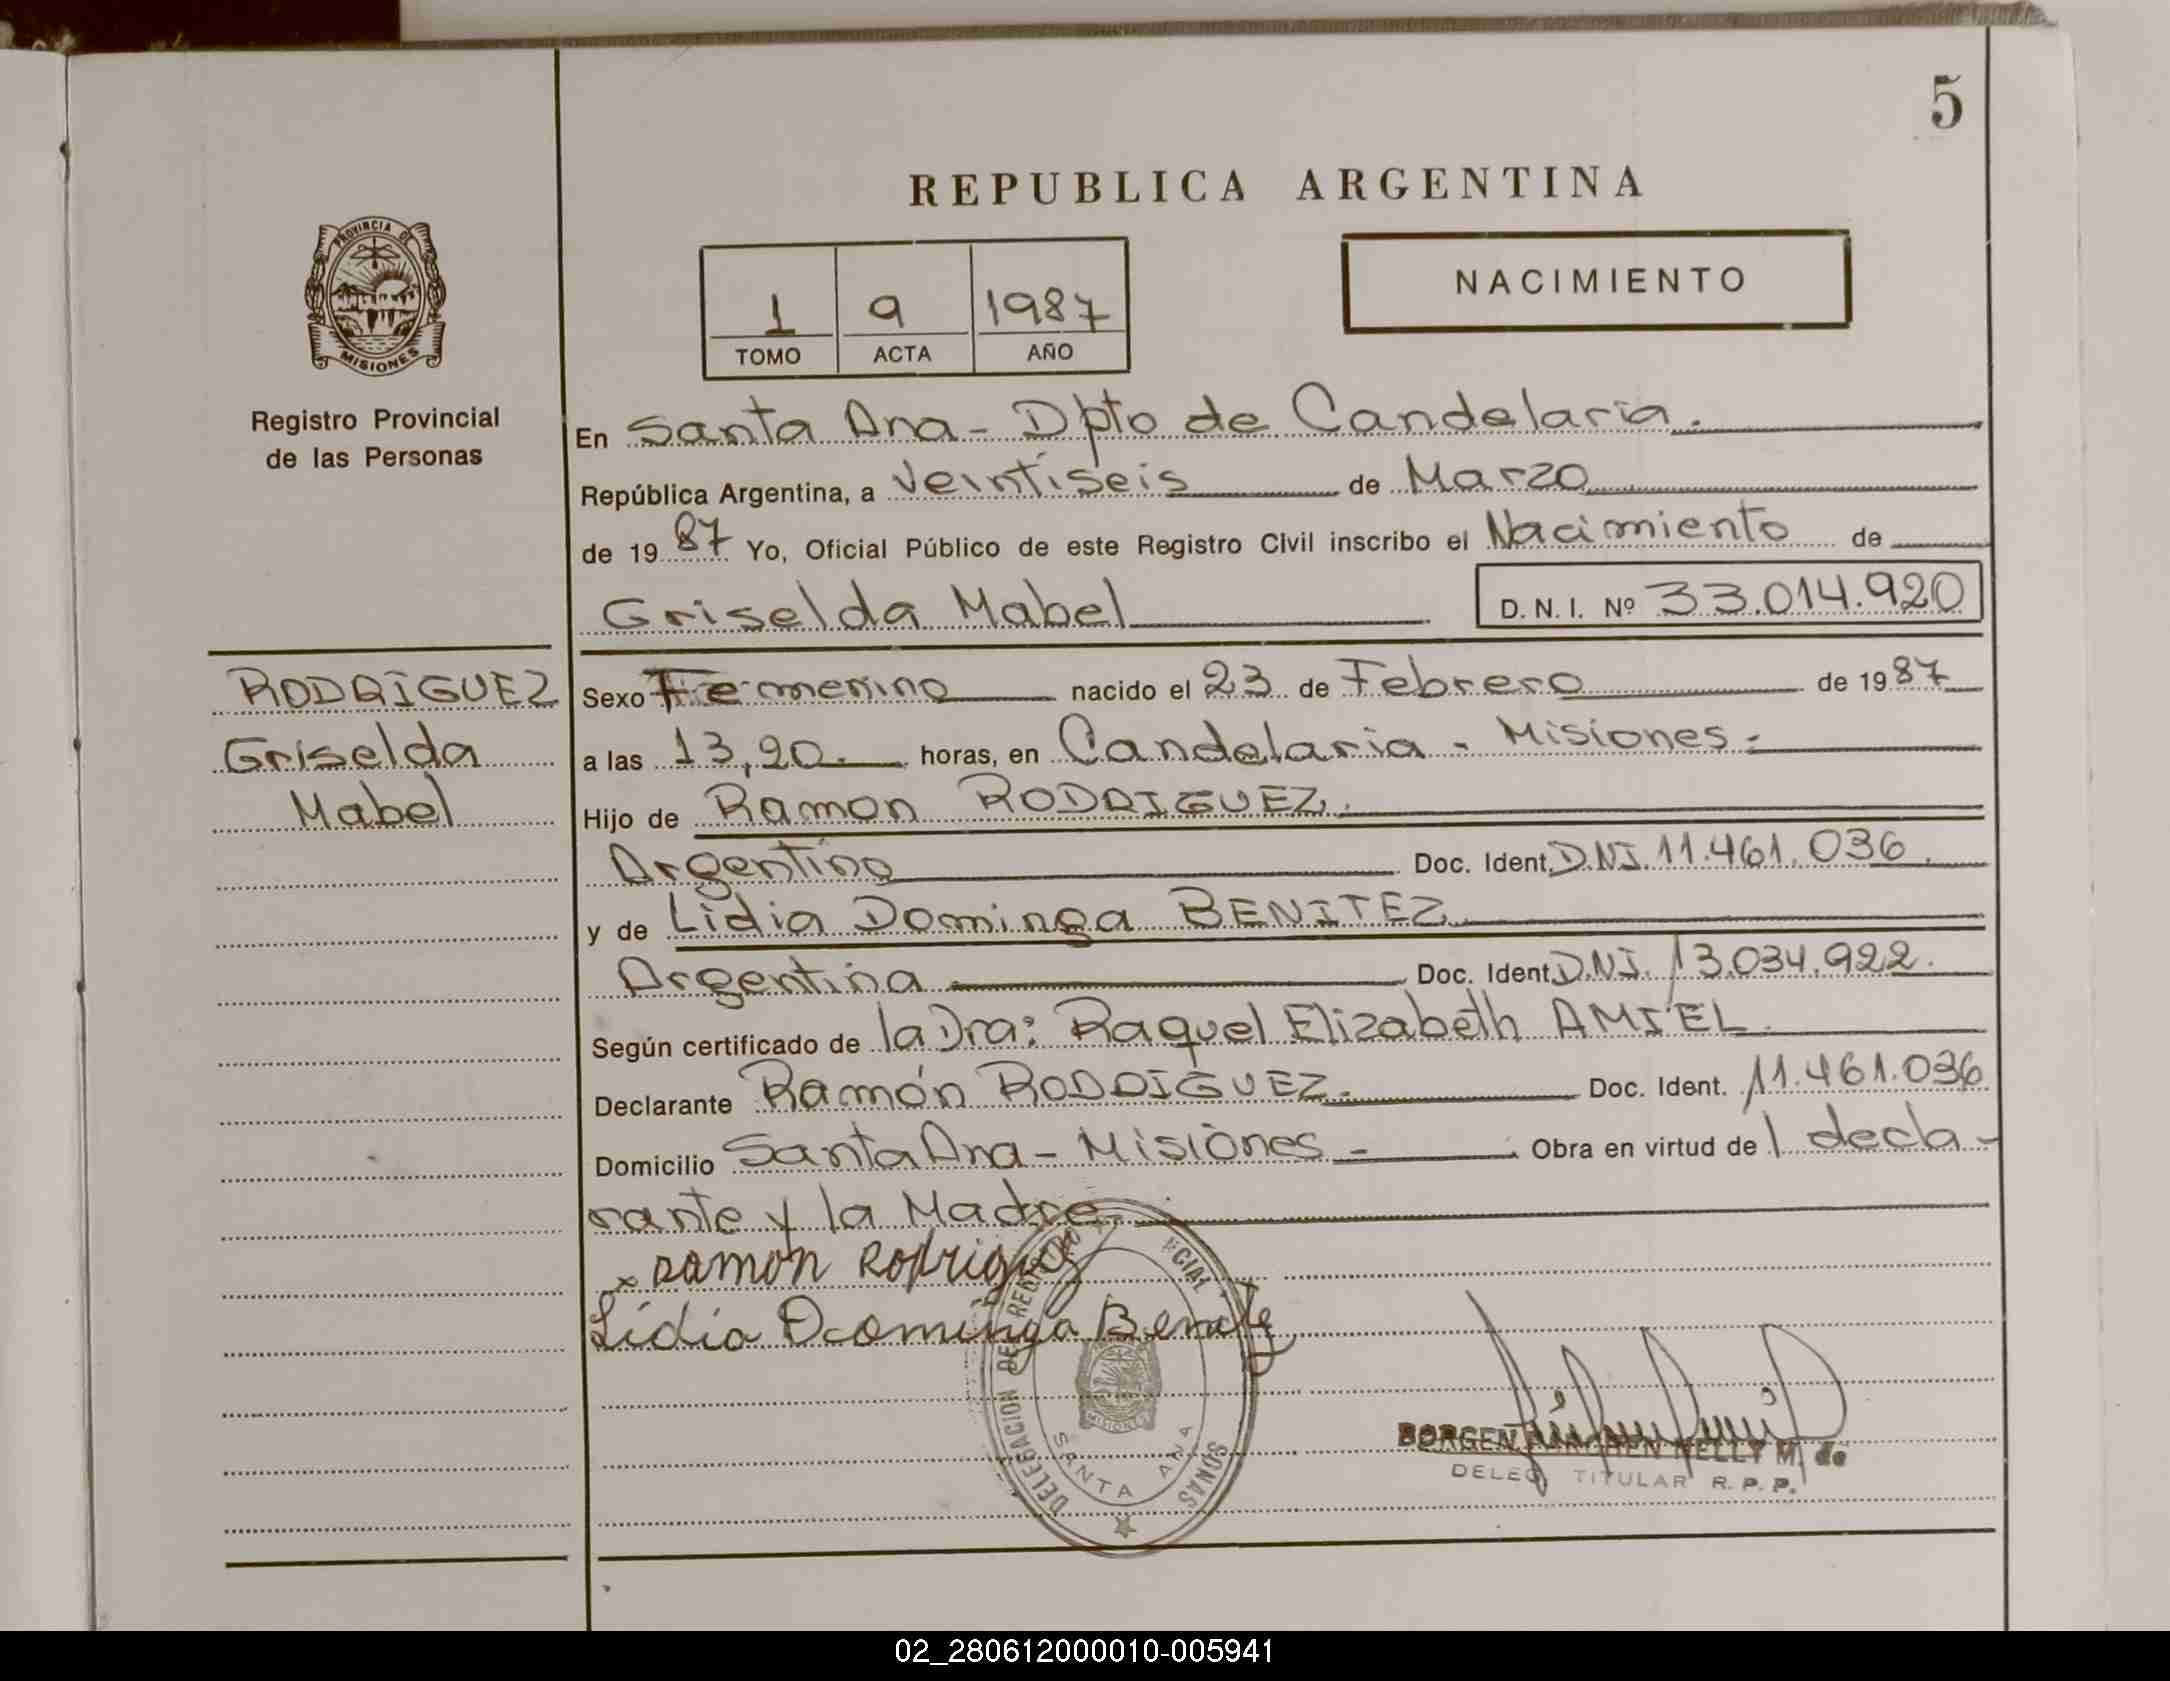 5
REPUBLICA ARGENTINA
NACIMIENTO
1 9 1987
TOMO ACTA AÑO
PROVINCIA DE
MISIONES
Registro Provincial
de las Personas
En Santa Ana - Dpto de Candelaria.
República Argentina, a veintiseis de Marzo
de 1987 Yo, Oficial Público de este Registro Civil inscribo el Nacimiento de
Griselda Mabel D. N. I. Nº 33.014.920
RODRIGUEZ
Griselda
Mabel
Sexo Femenino nacido el 23 de Febrero de 1987
a las 13,20. horas, en Candelaria - Misiones -
Hijo de Ramon RODRIGUEZ.
Argentino Doc. Ident. DNI. 11.461.036.
y de Lidia Dominga BENITEZ
Argentina Doc. Ident. DNI. 13.034.922.
Según certificado de la Dra: Raquel Elizabeth AMIEL.
Declarante Ramón RODRIGUEZ. Doc. Ident. 11.461.036
Domicilio Santa Ana - Misiones - Obra en virtud de l decla-
rante y la Madre
x Ramón Rodriguez
Lidia Dominga Benitez
DELEGACION DEL REGISTRO CIAL SONAS
SANTA ANA
MISIONES
BORGEN NELLY M. de
DELEG. TITULAR R. P. P.
02_280612000010-005941